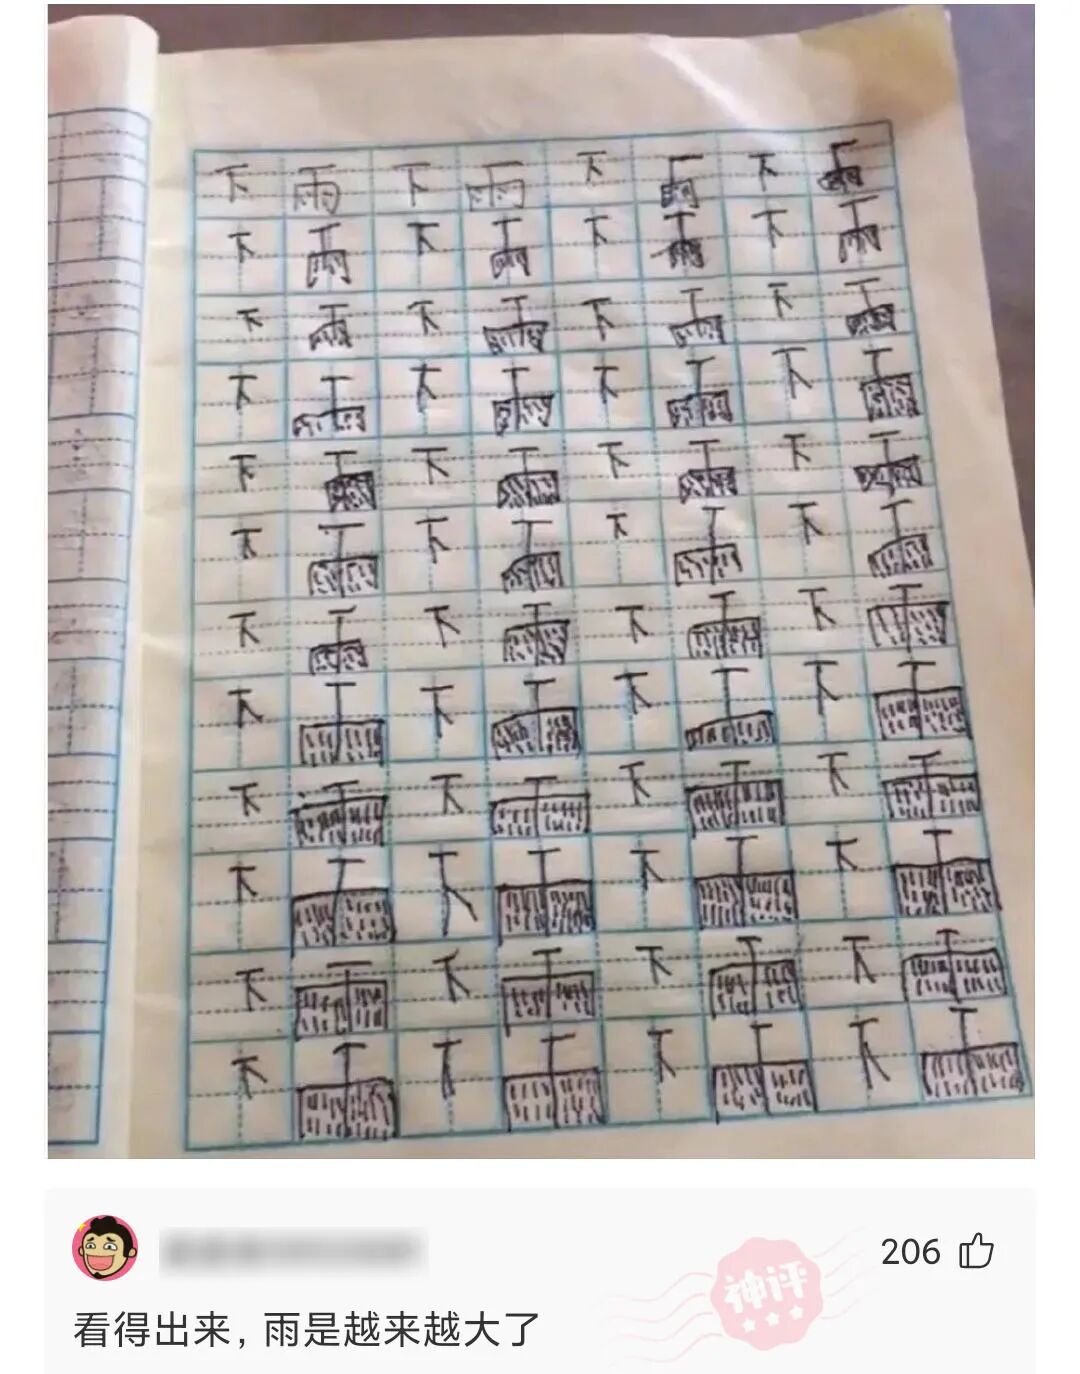 下 雨 下 雨 下 雨 下 雨
下 雨 下 雨 下 雨 下 雨
下 雨 下 雨 下 雨 下 雨
下 雨 下 雨 下 雨 下 雨
下 雨 下 雨 下 雨 下 雨
下 雨 下 雨 下 雨 下 雨
下 雨 下 雨 下 雨 下 雨
下 雨 下 雨 下 雨 下 雨
下 雨 下 雨 下 雨 下 雨
下 雨 下 雨 下 雨 下 雨
下 雨 下 雨 下 雨 下 雨
下 雨 下 雨 下 雨 下 雨
206
神评
看得出来, 雨是越来越大了